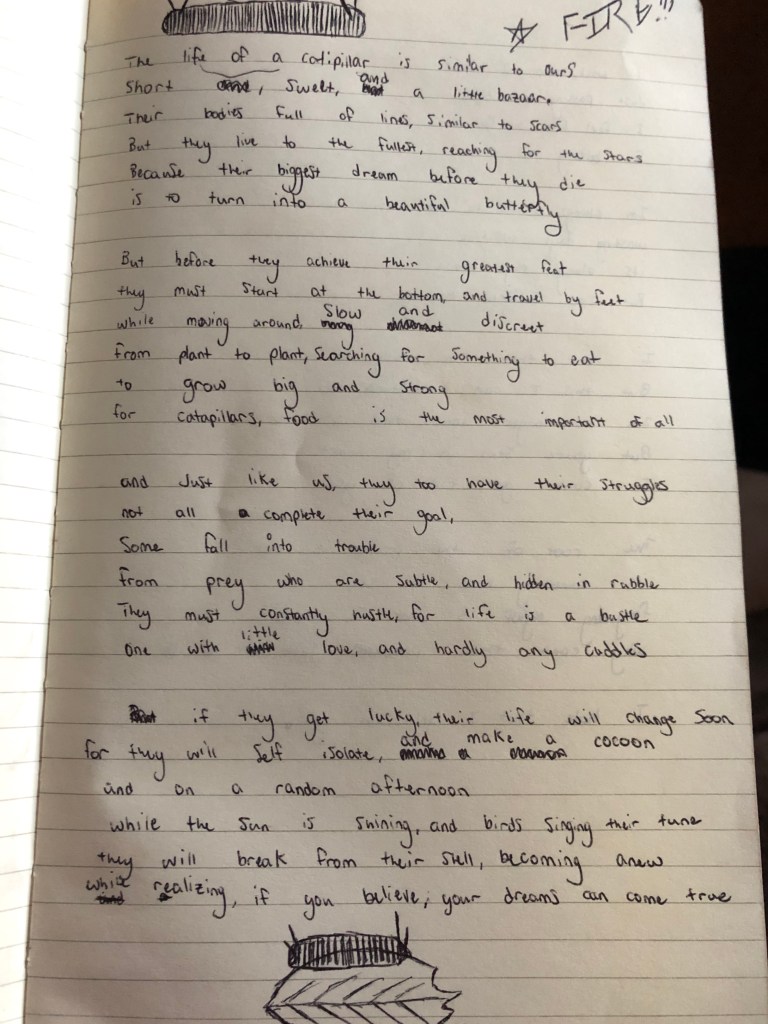 FIRE!!!
The life of a catipillar is similar to ours
Short, sweet, and a little bazaar.
Their bodies full of lines, similar to scars
But they live to the fullest, reaching for the stars
Because their biggest dream before they die
is to turn into a beautiful butterfly
But before they achieve their greatest feat
they must start at the bottom, and travel by feet
while moving around, slow and discreet
from plant to plant, searching for something to eat
to grow big and strong
for catapillars, food is the most important of all
and Just like us, they too have their struggles
not all complete their goal,
Some fall into trouble
from prey who are subtle, and hidden in rubble
They must constantly hustle, for life is a bustle
one with little love, and hardly any cuddles
if they get lucky, their life will change soon
for they will self isolate, and make a cocoon
and on a random afternoon
while the sun is shining, and birds singing their tune
they will break from their shell, becoming anew
while realizing, if you believe, your dreams can come true